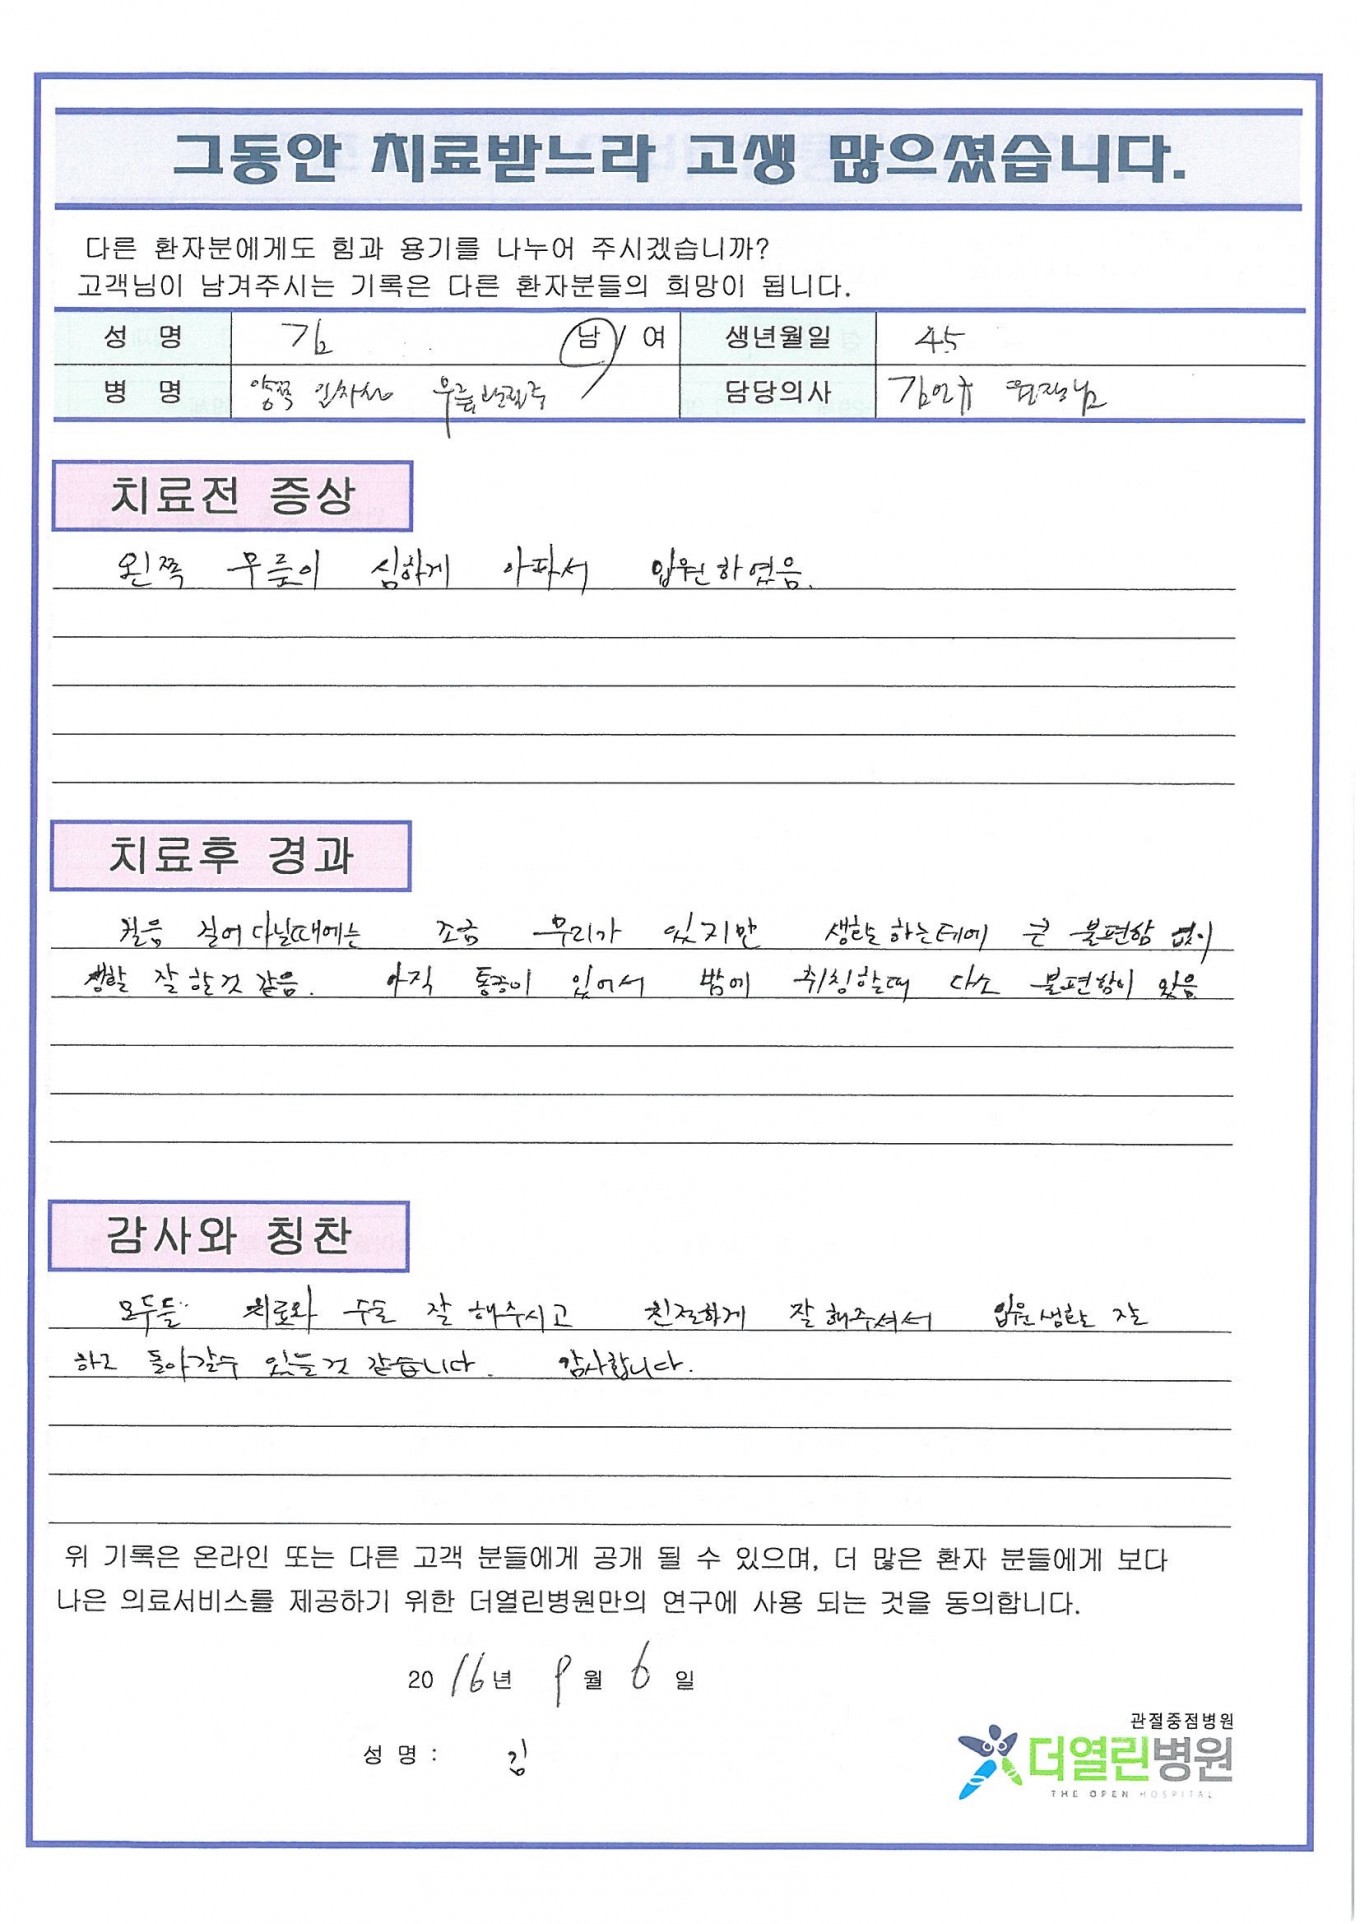 그동안 치료받느라 고생 많으셨습니다.
다른 환자분에게도 힘과 용기를 나누어 주시겠습니까?
고객님이 남겨주시는 기록은 다른 환자분들의 희망이 됩니다.
성 명 김 남 / 여 생년월일 45
병 명 양쪽 담당의사 원장님
치료전 증상
왼쪽 무릎이 심하게 아파서 입원하였음.
치료후 경과
걸음 걸어 다닐때에는 조금 무리가 있지만 생활하는데에 큰 불편함 없이
생활 잘 할것 같음. 아직 통증이 있어서 밤에 취침할때 다소 불편함이 있음
감사와 칭찬
모두들 치료와 수술 잘 해주시고 친절하게 잘 해주셔서 입원생활 잘
하고 돌아갈수 있는것 같습니다. 감사합니다.
위 기록은 온라인 또는 다른 고객 분들에게 공개 될 수 있으며, 더 많은 환자 분들에게 보다
나은 의료서비스를 제공하기 위한 더열린병원만의 연구에 사용 되는 것을 동의합니다.
2016년 9월 6일
성 명 : 김
관절중점병원
더열린병원
THE OPEN HOSPITAL